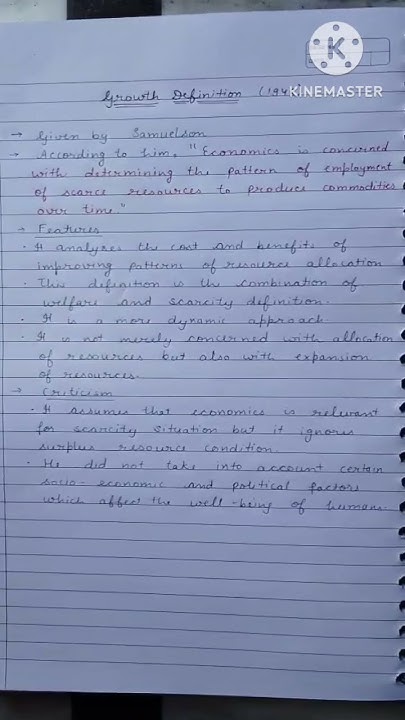 KINEMASTER
Growth Definition (194
→ Given by Samuelson
→ According to him, "Economics is concerned
with determining the pattern of employment
of scarce resources to produce commodities
over time."
→ Features
· It analyzes the cost and benefits of
improving patterns of resource allocation
· This definition is the combination of
welfare and scarcity definition.
· It is a more dynamic approach.
· It is not merely concerned with allocation
of resources but also with expansion
of resources.
→ Criticism
· It assumes that economics is relevant
for scarcity situation but it ignores
surplus resource condition.
· He did not take into account certain
socio-economic and political factors
which affect the well-being of humans.